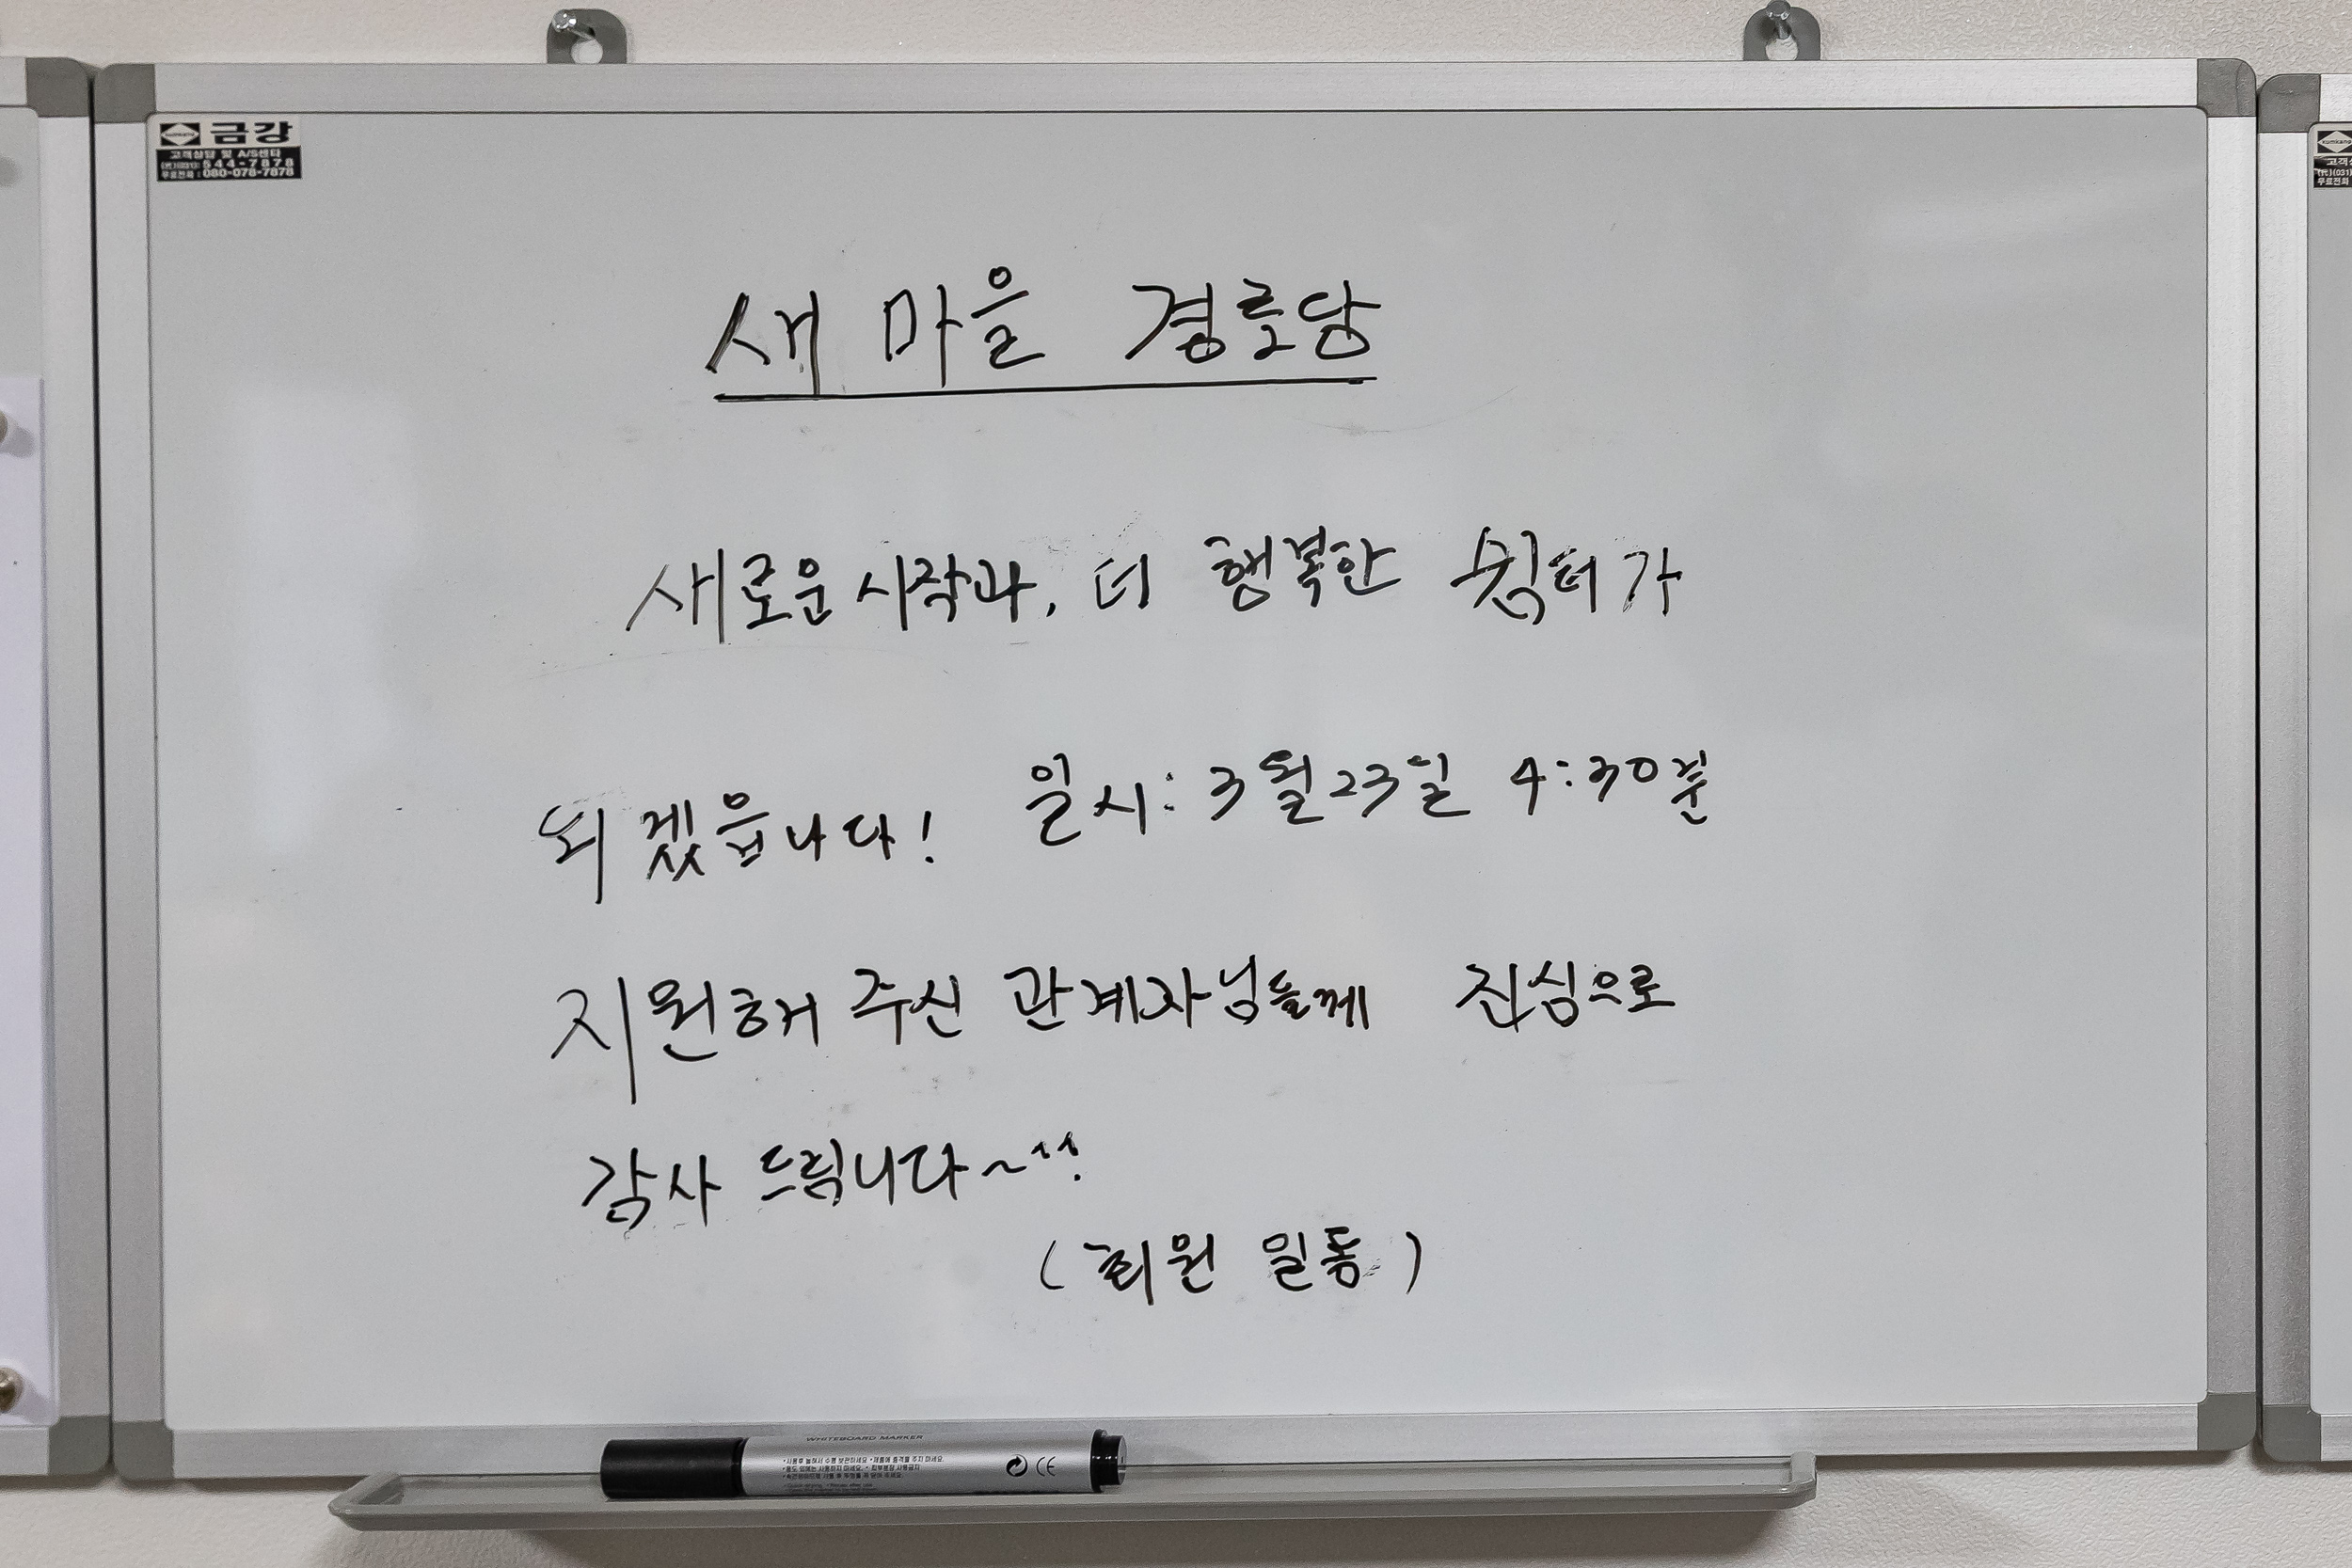 금강
고객상담 및 A/S센타
(代)(031) 544-7878
무료전화 : 080-078-7878
새 마을 경로당
새로운 시작과, 더 행복한 쉼터가
되겠읍니다! 일시: 3월23일 4:30분
지원해 주신 관계자님들께 진심으로
감사 드립니다~
(회원 일동)
WHITEBOARD MARKER
CE
고객
(代)(031)
무료전화